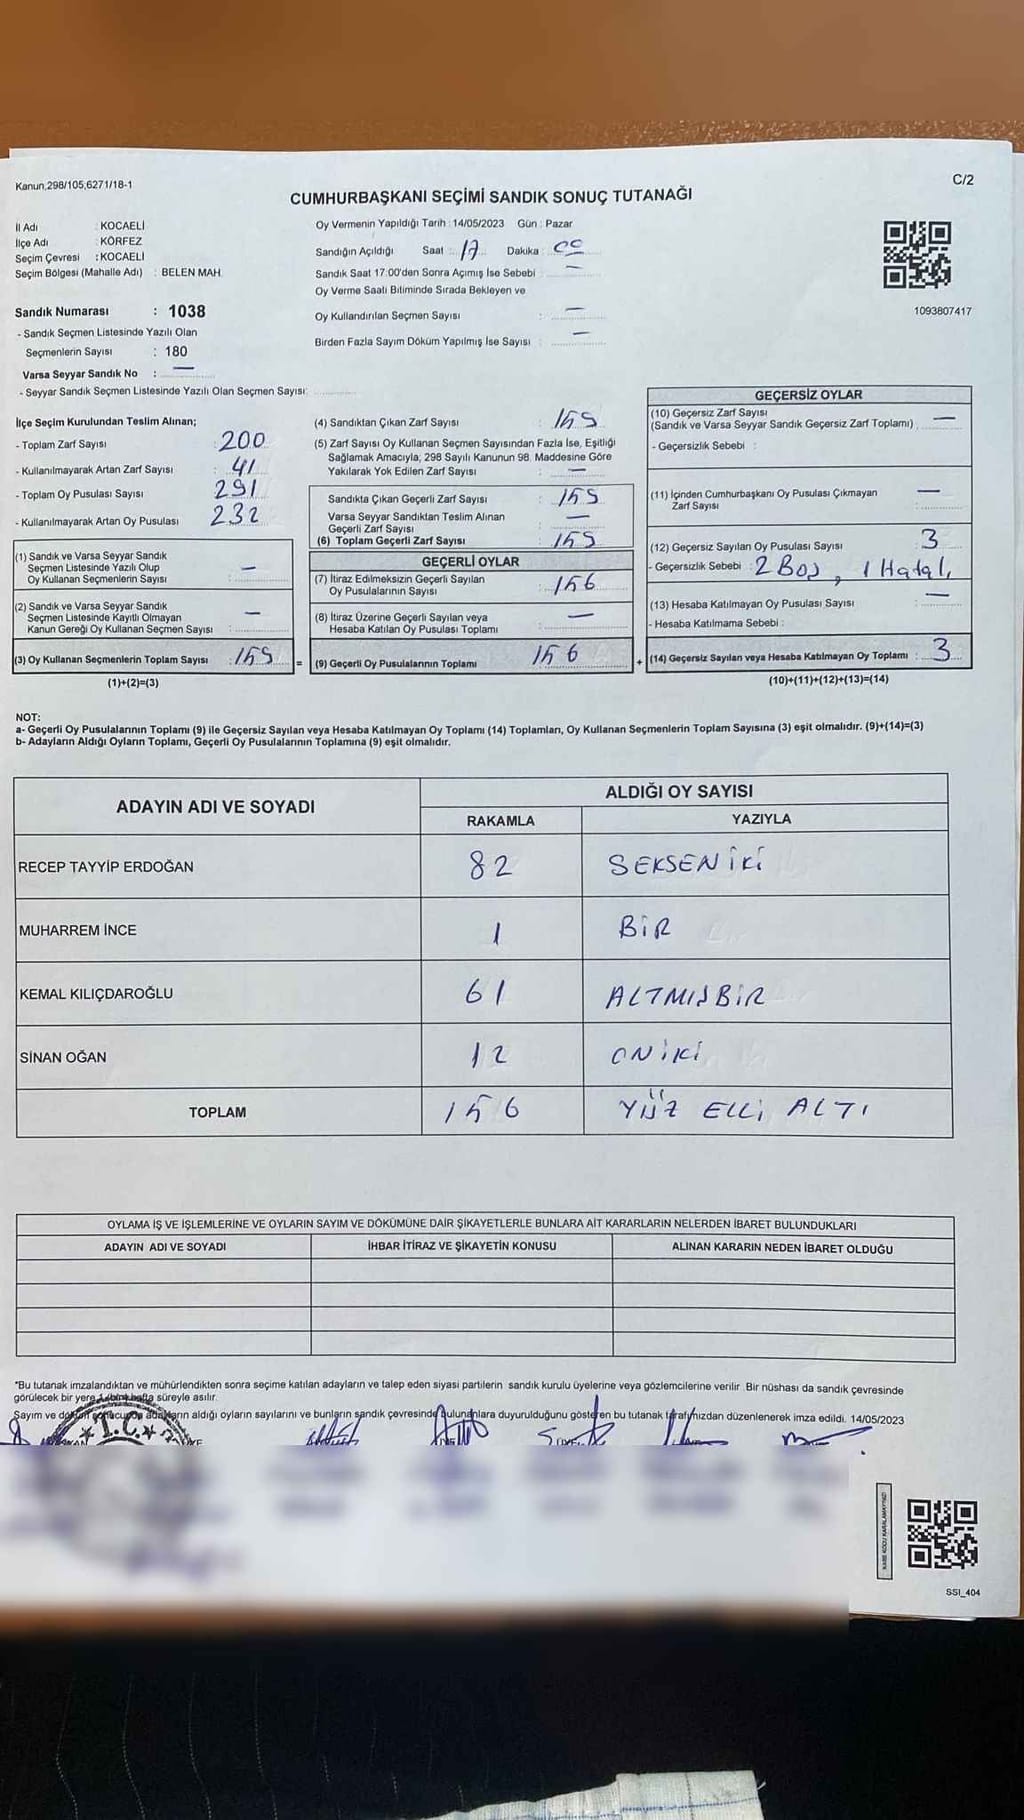 Kanun,298/105,6271/18-1
C/2
CUMHURBAŞKANI SEÇİMİ SANDIK SONUÇ TUTANAĞI
İl Adı : KOCAELİ
İlçe Adı : KÖRFEZ
Seçim Çevresi : KOCAELİ
Seçim Bölgesi (Mahalle Adı) : BELEN MAH.
Sandık Numarası : 1038
- Sandık Seçmen Listesinde Yazılı Olan
Seçmenlerin Sayısı : 180
Varsa Seyyar Sandık No : —
- Seyyar Sandık Seçmen Listesinde Yazılı Olan Seçmen Sayısı:
Oy Vermenin Yapıldığı Tarih : 14/05/2023 Gün : Pazar
Sandığın Açıldığı Saat : 17 Dakika : 00
Sandık Saat 17:00'den Sonra Açımış İse Sebebi : —
Oy Verme Saati Bitiminde Sırada Bekleyen ve
Oy Kullandırılan Seçmen Sayısı : —
Birden Fazla Sayım Döküm Yapılmış İse Sayısı : —
1093807417
İlçe Seçim Kurulundan Teslim Alınan;
- Toplam Zarf Sayısı : 200
- Kullanılmayarak Artan Zarf Sayısı : 41
- Toplam Oy Pusulası Sayısı : 291
- Kullanılmayarak Artan Oy Pusulası : 232
(1) Sandık ve Varsa Seyyar Sandık
Seçmen Listesinde Yazılı Olup
Oy Kullanan Seçmenlerin Sayısı : —
(2) Sandık ve Varsa Seyyar Sandık
Seçmen Listesinde Kayıtlı Olmayan
Kanun Gereği Oy Kullanan Seçmen Sayısı : —
(3) Oy Kullanan Seçmenlerin Toplam Sayısı : 159
(1)+(2)=(3)
=
(4) Sandıktan Çıkan Zarf Sayısı : 159
(5) Zarf Sayısı Oy Kullanan Seçmen Sayısından Fazla İse, Eşitliği
Sağlamak Amacıyla, 298 Sayılı Kanunun 98. Maddesine Göre
Yakılarak Yok Edilen Zarf Sayısı : —
Sandıkta Çıkan Geçerli Zarf Sayısı : 159
Varsa Seyyar Sandıktan Teslim Alınan
Geçerli Zarf Sayısı : —
(6) Toplam Geçerli Zarf Sayısı : 159
GEÇERLİ OYLAR
(7) İtiraz Edilmeksizin Geçerli Sayılan
Oy Pusulalarının Sayısı : 156
(8) İtiraz Üzerine Geçerli Sayılan veya
Hesaba Katılan Oy Pusulası Toplamı : —
(9) Geçerli Oy Pusulalarının Toplamı : 156
+
GEÇERSİZ OYLAR
(10) Geçersiz Zarf Sayısı
(Sandık ve Varsa Seyyar Sandık Geçersiz Zarf Toplamı) : —
- Geçersizlik Sebebi :
(11) İçinden Cumhurbaşkanı Oy Pusulası Çıkmayan
Zarf Sayısı : —
(12) Geçersiz Sayılan Oy Pusulası Sayısı : 3
- Geçersizlik Sebebi : 2 Boş, 1 Hatal,
(13) Hesaba Katılmayan Oy Pusulası Sayısı : —
- Hesaba Katılmama Sebebi :
(14) Geçersiz Sayılan veya Hesaba Katılmayan Oy Toplamı : 3
(10)+(11)+(12)+(13)=(14)
NOT:
a- Geçerli Oy Pusulalarının Toplamı (9) ile Geçersiz Sayılan veya Hesaba Katılmayan Oy Toplamı (14) Toplamları, Oy Kullanan Seçmenlerin Toplam Sayısına (3) eşit olmalıdır. (9)+(14)=(3)
b- Adayların Aldığı Oyların Toplamı, Geçerli Oy Pusulalarının Toplamına (9) eşit olmalıdır.
ADAYIN ADI VE SOYADI
ALDIĞI OY SAYISI
RAKAMLA YAZIYLA
RECEP TAYYİP ERDOĞAN 82 SEKSENİKİ
MUHARREM İNCE 1 BİR
KEMAL KILIÇDAROĞLU 61 ALTMIŞBİR
SİNAN OĞAN 12 ONİKİ
TOPLAM 156 YÜZ ELLİ ALTI
OYLAMA İŞ VE İŞLEMLERİNE VE OYLARIN SAYIM VE DÖKÜMÜNE DAİR ŞİKAYETLERLE BUNLARA AİT KARARLARIN NELERDEN İBARET BULUNDUKLARI
ADAYIN ADI VE SOYADI İHBAR İTİRAZ VE ŞİKAYETİN KONUSU ALINAN KARARIN NEDEN İBARET OLDUĞU
"Bu tutanak imzalandıktan ve mühürlendikten sonra seçime katılan adayların ve talep eden siyasi partilerin sandık kurulu üyelerine veya gözlemcilerine verilir. Bir nüshası da sandık çevresinde
görülecek bir yere 1 (bir) hafta süreyle asılır.
Sayım ve döküm sonucunda adayların aldığı oyların sayılarını ve bunların sandık çevresinde bulunanlara duyurulduğunu gösteren bu tutanak tarafımızdan düzenlenerek imza edildi. 14/05/2023
T.C.
SSI_404